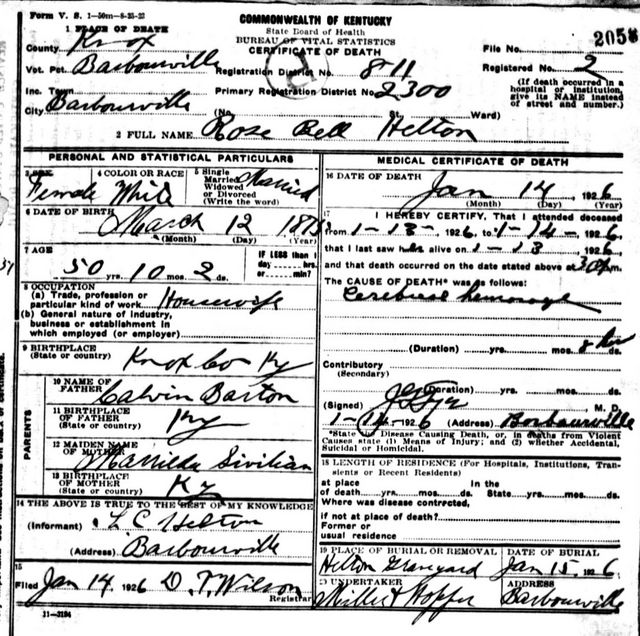 Form V. S. 1-50m-8-23-23
COMMONWEALTH OF KENTUCKY
State Board of Health
BUREAU OF VITAL STATISTICS
CERTIFICATE OF DEATH
1 PLACE OF DEATH
County Knox
File No. 205
Vot. Pct. Barbourville Registration District No. 811 Registered No. 2
Inc. Town Primary Registration District No. 2300
(If death occurred in a hospital or institution, give its NAME instead of street and number.)
City Barbourville (No. Ward)
2 FULL NAME Rose Bell Helton
PERSONAL AND STATISTICAL PARTICULARS
3 SEX Female
4 COLOR OR RACE White
5 Single Married Widowed or Divorced (Write the word) Married
6 DATE OF BIRTH March 12 1875
(Month) (Day) (Year)
7 AGE 50 yrs. 10 mos. 2 ds.
IF LESS than 1 day hrs. or min.
8 OCCUPATION
(a) Trade, profession or particular kind of work Housewife
(b) General nature of industry, business or establishment in which employed (or employer)
9 BIRTHPLACE (State or country) Knox Co Ky
PARENTS
10 NAME OF FATHER Calvin Barton
11 BIRTHPLACE OF FATHER (State or country) Ky
12 MAIDEN NAME OF MOTHER Matilda
13 BIRTHPLACE OF MOTHER (State or country) Ky
14 THE ABOVE IS TRUE TO THE BEST OF MY KNOWLEDGE
(Informant) L C Helton
(Address) Barbourville
15
Filed Jan 14 1926 D. T. Wilson
Registrar
11-3184
MEDICAL CERTIFICATE OF DEATH
16 DATE OF DEATH
Jan 14, 1926
(Month) (Day) (Year)
17 I HEREBY CERTIFY, That I attended deceased
from 1-13-, 1926, to 1-14-, 1926,
that I last saw her alive on 1-13, 1926,
and that death occurred on the date stated above at m.
The CAUSE OF DEATH* was as follows:
Cerebral hemoragh
(Duration) yrs. mos. 8 hrs
Contributory
(Secondary)
(Duration) yrs. mos. ds.
(Signed) M. D.
1-14-1926 (Address) Barbourville
*State the Disease Causing Death, or, in deaths from Violent
Causes state (1) Means of Injury; and (2) whether Accidental,
Suicidal or Homicidal.
18 LENGTH OF RESIDENCE (For Hospitals, Institutions, Transients or Recent Residents)
at place of death yrs. mos. ds. In the State yrs. mos. ds.
Where was disease contracted,
if not at place of death?
Former or usual residence
19 PLACE OF BURIAL OR REMOVAL DATE OF BURIAL
Helton Graveyard Jan 15, 1926
20 UNDERTAKER ADDRESS
Miller & Hopper Barbourville